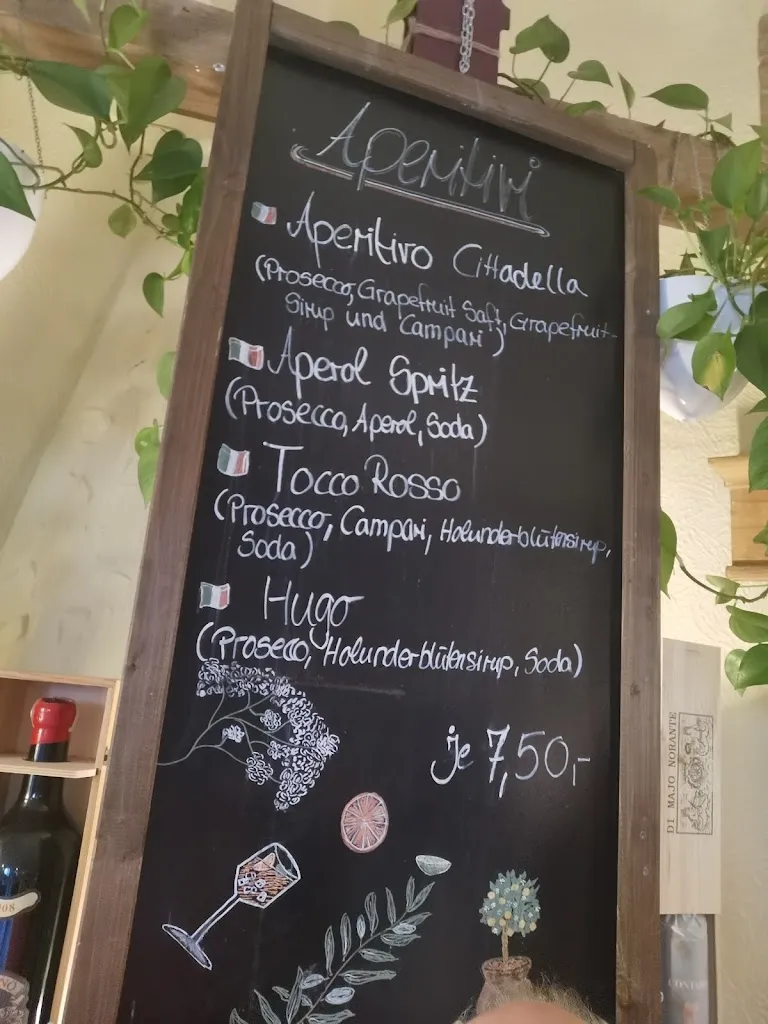 Aperitivi
Aperitivo Cittadella
(Prosecco, Grapefruit Saft, Grapefruit-
Sirup und Campari)
Aperol Spritz
(Prosecco, Aperol, Soda)
Tocco Rosso
(Prosecco, Campari, Holunderblütensirup,
Soda)
Hugo
(Prosecco, Holunderblütensirup, Soda)
je 7,50,-
DI MAJO NORANTE